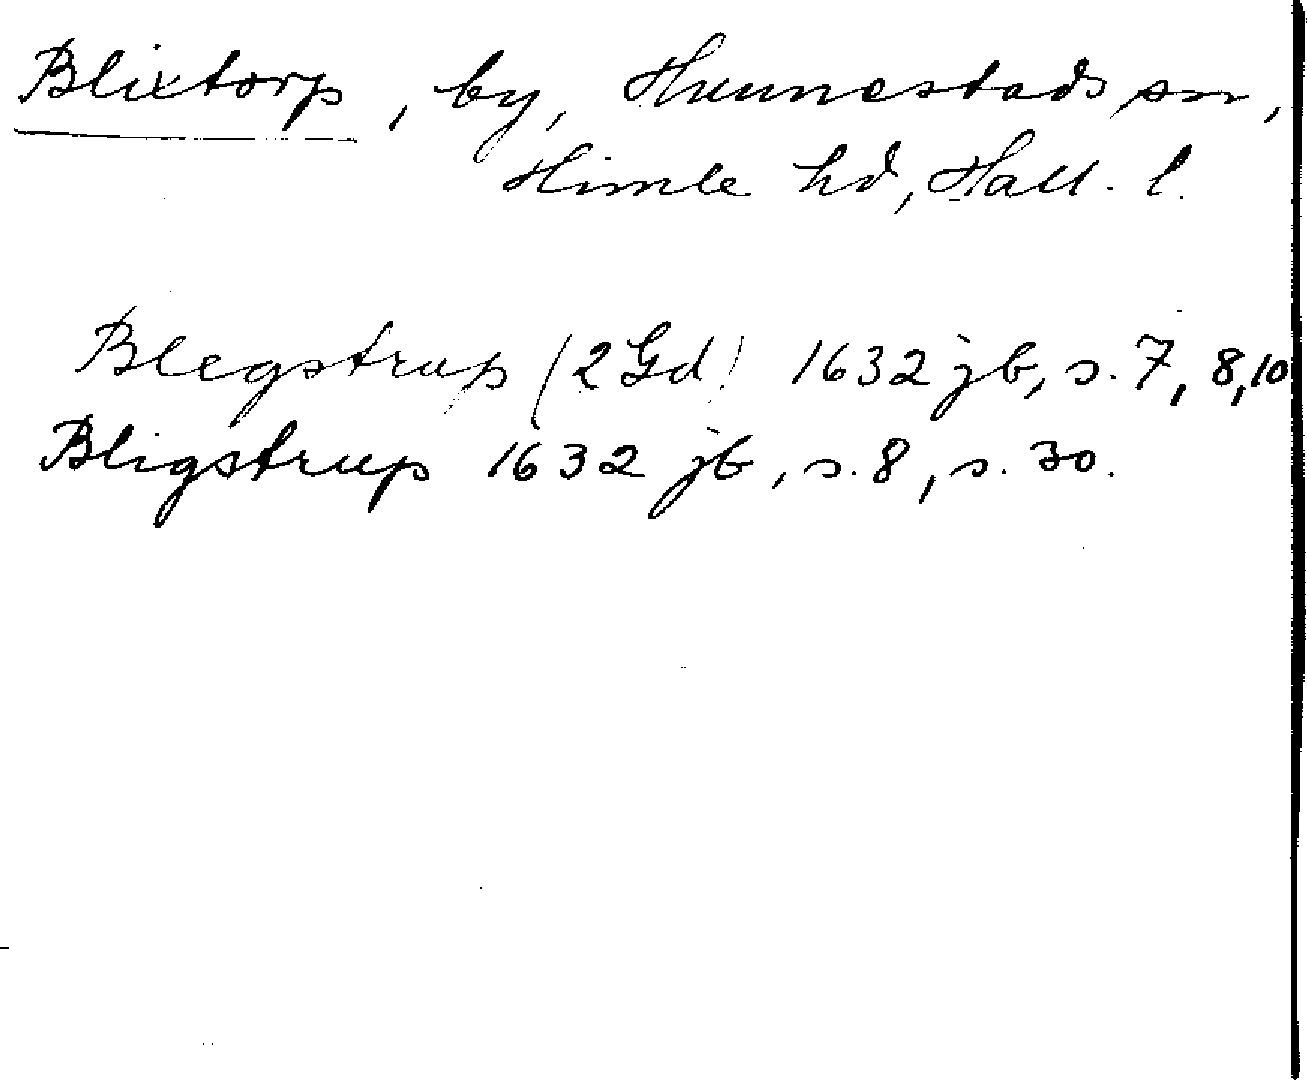 Blixtorp, by, Hunnestads sn,
Himle hd, Hall. l.
Blegstrup (2 Gd) 1632 jb, s. 7, 8, 10
Bligstrup 1632 jb, s. 8, s. 30.